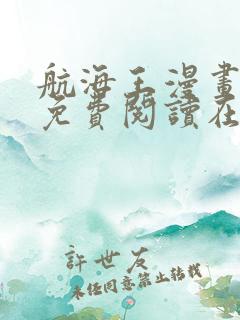 航海王漫畫
免費閱讀在
許世友
未經同意禁止轉載